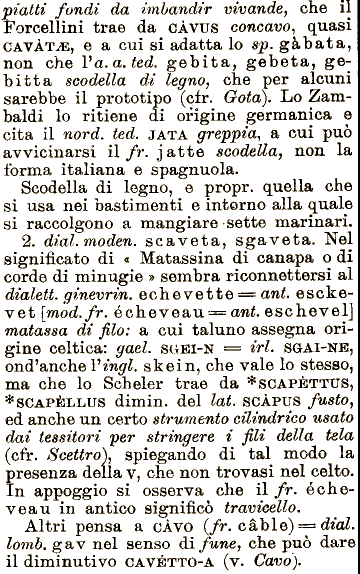 piatti fondi da imbandir vivande, che il
Forcellini trae da CÀVUS concavo, quasi
CAVÀTÆ, e a cui si adatta lo sp. gàbata,
non che l'a. a. ted. gebita, gebeta, ge-
bitta scodella di legno, che per alcuni
sarebbe il prototipo (cfr. Gota). Lo Zam-
baldi lo ritiene di origine germanica e
cita il nord. ted. JATA greppia, a cui può
avvicinarsi il fr. jatte scodella, non la
forma italiana e spagnuola.
Scodella di legno, e propr. quella che
si usa nei bastimenti e intorno alla quale
si raccolgono a mangiare sette marinari.
2. dial. moden. scaveta, sgaveta. Nel
significato di « Matassina di canapa o di
corde di minugie » sembra riconnettersi al
dialett. ginevrin. echevette = ant. escke-
vet [mod. fr. écheveau = ant. eschevel]
matassa di filo: a cui taluno assegna ori-
gine celtica: gael. SGEI-N = irl. SGAI-NE,
ond'anche l'ingl. skein, che vale lo stesso,
ma che lo Scheler trae da *SCAPÈTTUS,
*SCAPÈLLUS dimin. del lat. SCÀPUS fusto,
ed anche un certo strumento cilindrico usato
dai tessitori per stringere i fili della tela
(cfr. Scettro), spiegando di tal modo la
presenza della v, che non trovasi nel celto.
In appoggio si osserva che il fr. éche-
veau in antico significò travicello.
Altri pensa a CÀVO (fr. câble) = dial.
lomb. gav nel senso di fune, che può dare
il diminutivo CAVÉTTO-A (v. Cavo).